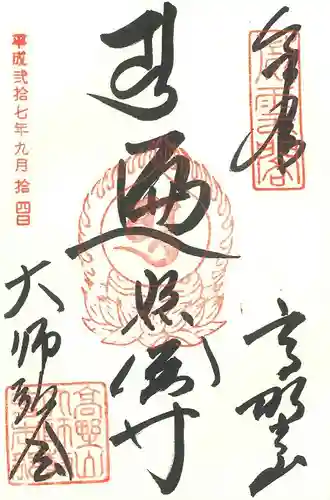 奉拝
高野山
遍照金剛
大師教会
平成弐拾七年九月拾四日
高野山